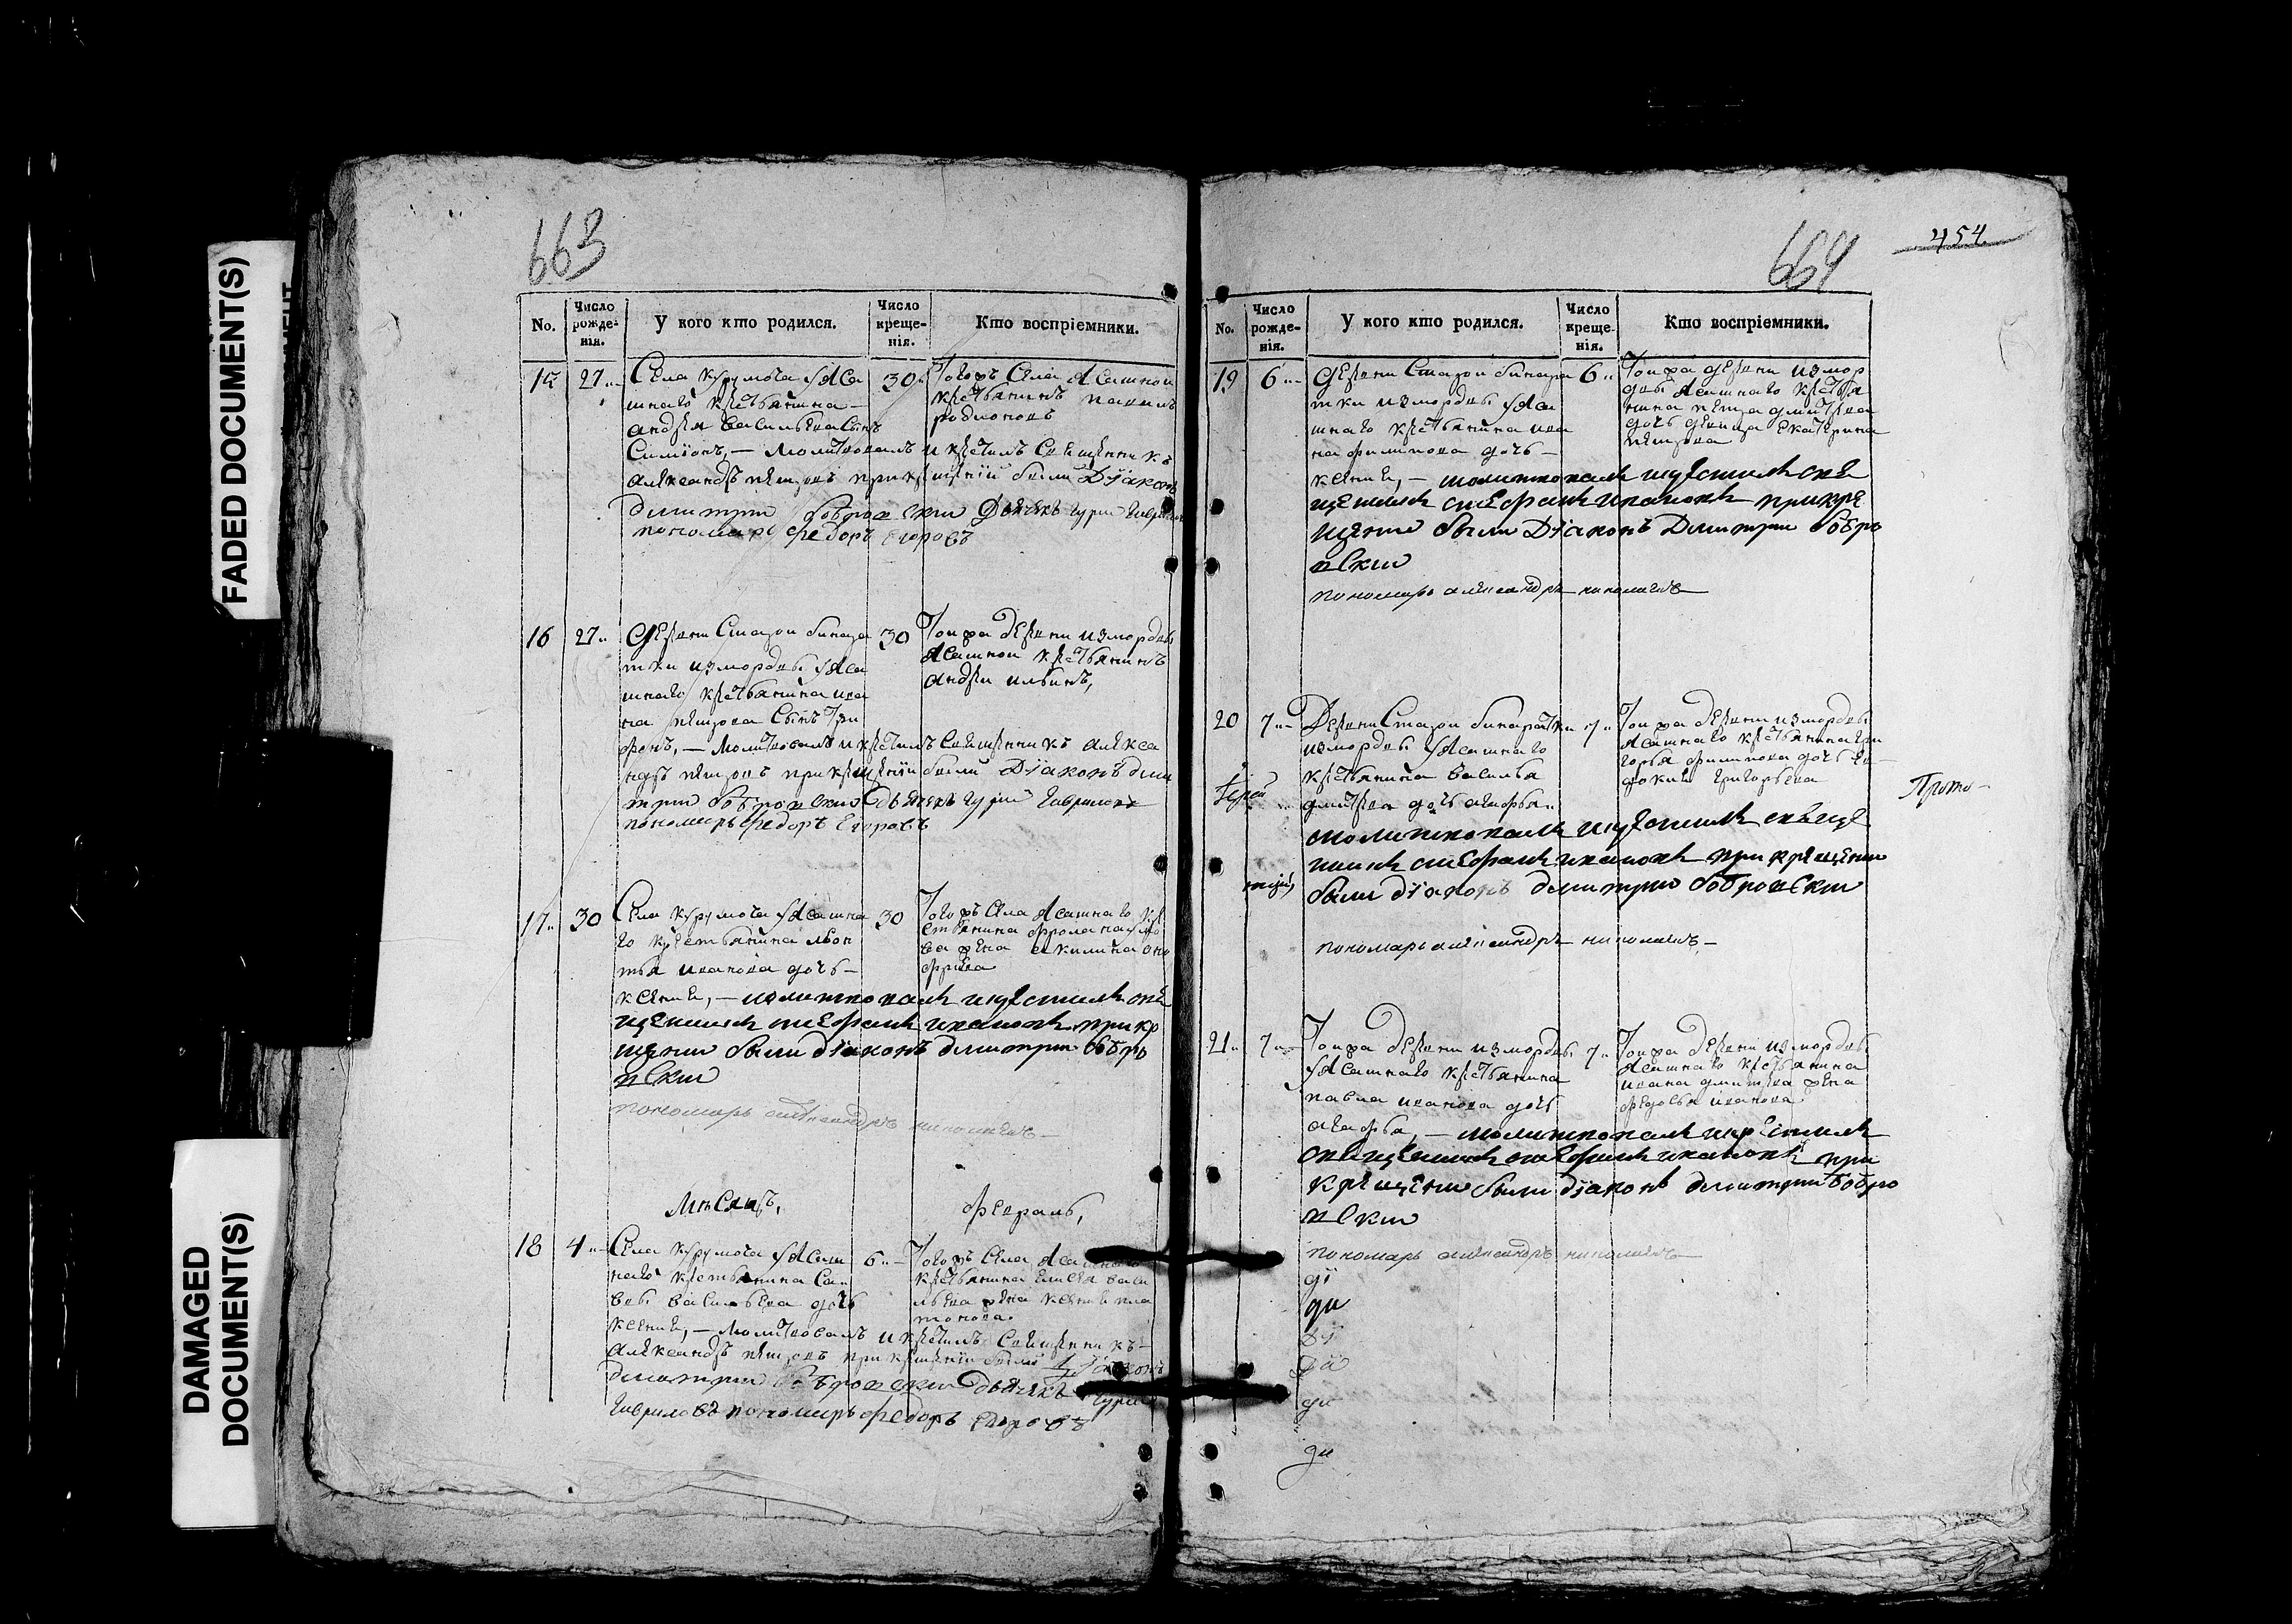 FADED DOCUMENT(S)
DAMAGED
DOCUMENT(S)
663
No.
Число рожде- нія.
У кого кто родился.
Число креще- нія.
Кто воспріемники.
15 27
Села курумоча ясашнаго крестьянина
андрея васильева сынъ
Симіонъ, — молитвовалъ и крестилъ Священникъ
александръ петровъ прикрещеніи были Діаконъ
димитрии бобровскии Дьячекъ гурии гаврилов
пономарь федоръ егоровъ
30
Тогожъ села ясашнои
крестьянинъ
родионовъ
16 27
деревни Старои бинара
тки измордвы яса
шнаго крестьянина ива
на петрова сынъ Три
фонъ, — молитвовалъ и крестилъ Священникъ алекса
ндръ петровъ прикрещеніи были Діаконъ дими
трии бобровскии дьячекъ гурии гавриловъ
пономарь федоръ егоровъ
30
Тоижа деревни измордвы
ясашнои крестьянинъ
андреи ильинъ,
17 30
Села курумоча ясашна
го крестьянина леон
тья иванова дочь —
ксения, — молитвовалъ икрестилъ све
щенникъ стефанъ ивановъ прикр
щении были діаконъ димитрии бобро
вскии
пономарь александръ николаевъ —
30
Тогожъ села ясашнаго кре
стьянина фрола
жена акилина оно
фриева
Месяцъ, февраль,
18 4
Села курумоча ясаш
наго крестьянина Са
вы васильева дочь
ксения, — молитвовалъ и крестилъ Священникъ —
александръ петровъ прикрещеніи были Діаконъ
димитрии бобровскии дьячекъ гурии
гавриловъ пономарь федоръ егоровъ
6
Тогожъ села ясашнаго
крестьянина елисея васи
льева жена ксения пла
тонова
664
454
No.
Число рожде- нія.
У кого кто родился.
Число креще- нія.
Кто воспріемники.
19 6
деревни Старои бинара
тки измордвы яса
шнаго крестьянина ива
на филипова дочь —
ксения, — молитвовалъ икрестилъ све
щенникъ стефанъ ивановъ прикре
щении были Діаконъ Димитрии бобро
вскии
пономарь александръ николаевъ
6
Тоижа деревни измор
двы ясашнаго крестья
нина петра дмитрева
дочь девица екатерина
петрова
20 7
Деревни Старои бинаратки
измордвы ясашнаго
крестьянина василья
дмитрева дочь агафья
молитвовалъ икрестилъ свеще
нникъ стефанъ ивановъ при крещении
были діаконъ димитрии бобровскии
пономарь александръ николаевъ —
7
Тоижа деревни измордвы
ясашнаго крестьянина гри
горья филипова дочь ев
докия григорьева
Іерей
Прото —
21 7
Тоижа деревни измордвы
ясашнаго крестьянина
павла иванова дочь
агафья, — молитвовалъ икрестилъ
священникъ стефанъ ивановъ при
крещении были діаконъ димитрии бобро
вскии
пономарь александръ николаевъ
7
Тоижа деревни измордвы
ясашнаго крестьянина
ивана дмитрева жена
федосья иванова
ди
ди
ди
ди